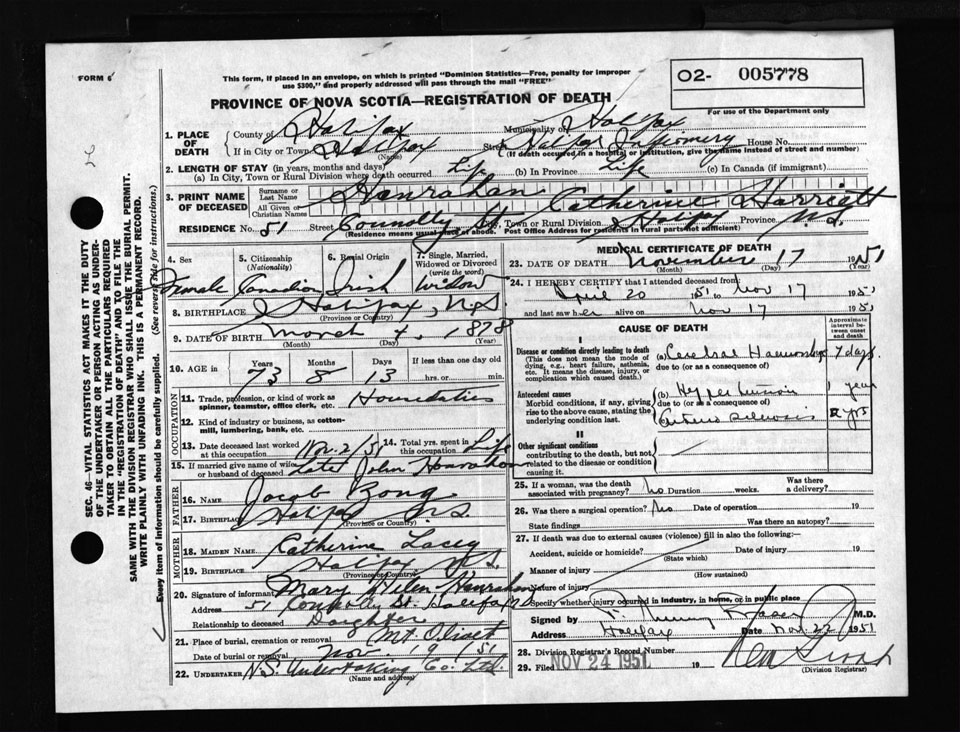 FORM 6
This form, if placed in an envelope, on which is printed "Dominion Statistics—Free, penalty for improper
use $300," and properly addressed will pass through the mail "FREE"
O2- 005778
For use of the Department only
PROVINCE OF NOVA SCOTIA—REGISTRATION OF DEATH
1. PLACE OF DEATH
County of Halifax Municipality of Halifax
If in City or Town Halifax Street Halifax Infirmery House No.
(Name) (If death occurred in a hospital or institution, give the name instead of street and number)
2. LENGTH OF STAY (in years, months and days)
(a) In City, Town or Rural Division where death occurred Life (b) In Province Life (c) In Canada (if immigrant)
3. PRINT NAME OF DECEASED
Surname or Last Name Hanrahan
All Given or Christian Names Catherine Harriett
RESIDENCE No. 51 Street Connolly St. Town or Rural Division Halifax Province N.S.
(Residence means usual place of abode. Post Office Address for Residents in Rural parts not sufficient)
4. Sex 5. Citizenship (Nationality) 6. Racial Origin 7. Single, Married, Widowed or Divorced (write the word)
Female Canadian Irish Widow
8. BIRTHPLACE Halifax, N.S.
(Province or Country)
9. DATE OF BIRTH March 4, 1878
(Month) (Day) (Year)
10. AGE in Years Months Days If less than one day old
73 8 13 hrs. or min.
OCCUPATION
11. Trade, profession, or kind of work as spinner, teamster, office clerk, etc. Housduties
12. Kind of industry or business, as cotton-mill, lumbering, bank, etc.
13. Date deceased last worked at this occupation Nov. 2/51 14. Total yrs. spent in this occupation Life
15. If married give name of wife or husband of deceased Late John Hanrahan
FATHER
16. NAME Jacob Bong
17. BIRTHPLACE Halifax N.S.
(Province or Country)
MOTHER
18. MAIDEN NAME Catherine Lacey
19. BIRTHPLACE Halifax N.S.
(Province or Country)
20. Signature of informant Mary Helen Hanrahan
Address 51 Connolly St. Halifax
Relationship to deceased Daughter
21. Place of burial, cremation or removal Mt. Olivet
Date of burial or removal Nov. 19/51
22. UNDERTAKER N.S. Undertaking Co. Ltd.
(Name and address)
MEDICAL CERTIFICATE OF DEATH
23. DATE OF DEATH November 17 1951
(Month) (Day) (Year)
24. I HEREBY CERTIFY that I attended deceased from:
April 20 1951 to Nov 17 1951
and last saw her alive on Nov 17 1951
CAUSE OF DEATH
Approximate interval between onset and death
I
Disease or condition directly leading to death
(This does not mean the mode of dying, e.g., heart failure, asthenia, etc. It means the disease, injury, or complication which caused death.)
(a) Cerebral Haemorrhage 7 days
due to (or as a consequence of)
Antecedent causes
Morbid conditions, if any, giving rise to the above cause, stating the underlying condition last.
(b) Hypertension 1 year
due to (or as a consequence of)
(c) Arterio Sclerosis yrs
II
Other significant conditions contributing to the death, but not related to the disease or condition causing it.
25. If a woman, was the death associated with pregnancy? No Duration weeks. Was there a delivery?
26. Was there a surgical operation? No Date of operation 19
State findings Was there an autopsy?
27. If death was due to external causes (violence) fill in also the following:
Accident, suicide or homicide? Date of injury 19
(State which)
Manner of injury
(How sustained)
Nature of injury
Specify whether injury occurred in industry, in home, or in public place
Signed by M.D.
Address Halifax Date Nov. 22 1951
28. Division Registrar's Record Number
29. Filed NOV 24 1951 19
(Division Registrar)
SEC. 46—VITAL STATISTICS ACT MAKES IT THE DUTY
OF THE UNDERTAKER OR PERSON ACTING AS UNDER-
TAKER TO OBTAIN ALL THE PARTICULARS REQUIRED
IN THE "REGISTRATION OF DEATH" AND TO FILE THE
SAME WITH THE DIVISION REGISTRAR WHO SHALL ISSUE THE BURIAL PERMIT.
WRITE PLAINLY WITH UNFADING INK. THIS IS A PERMANENT RECORD.
Every item of information should be carefully supplied. (See reverse side for instructions.)